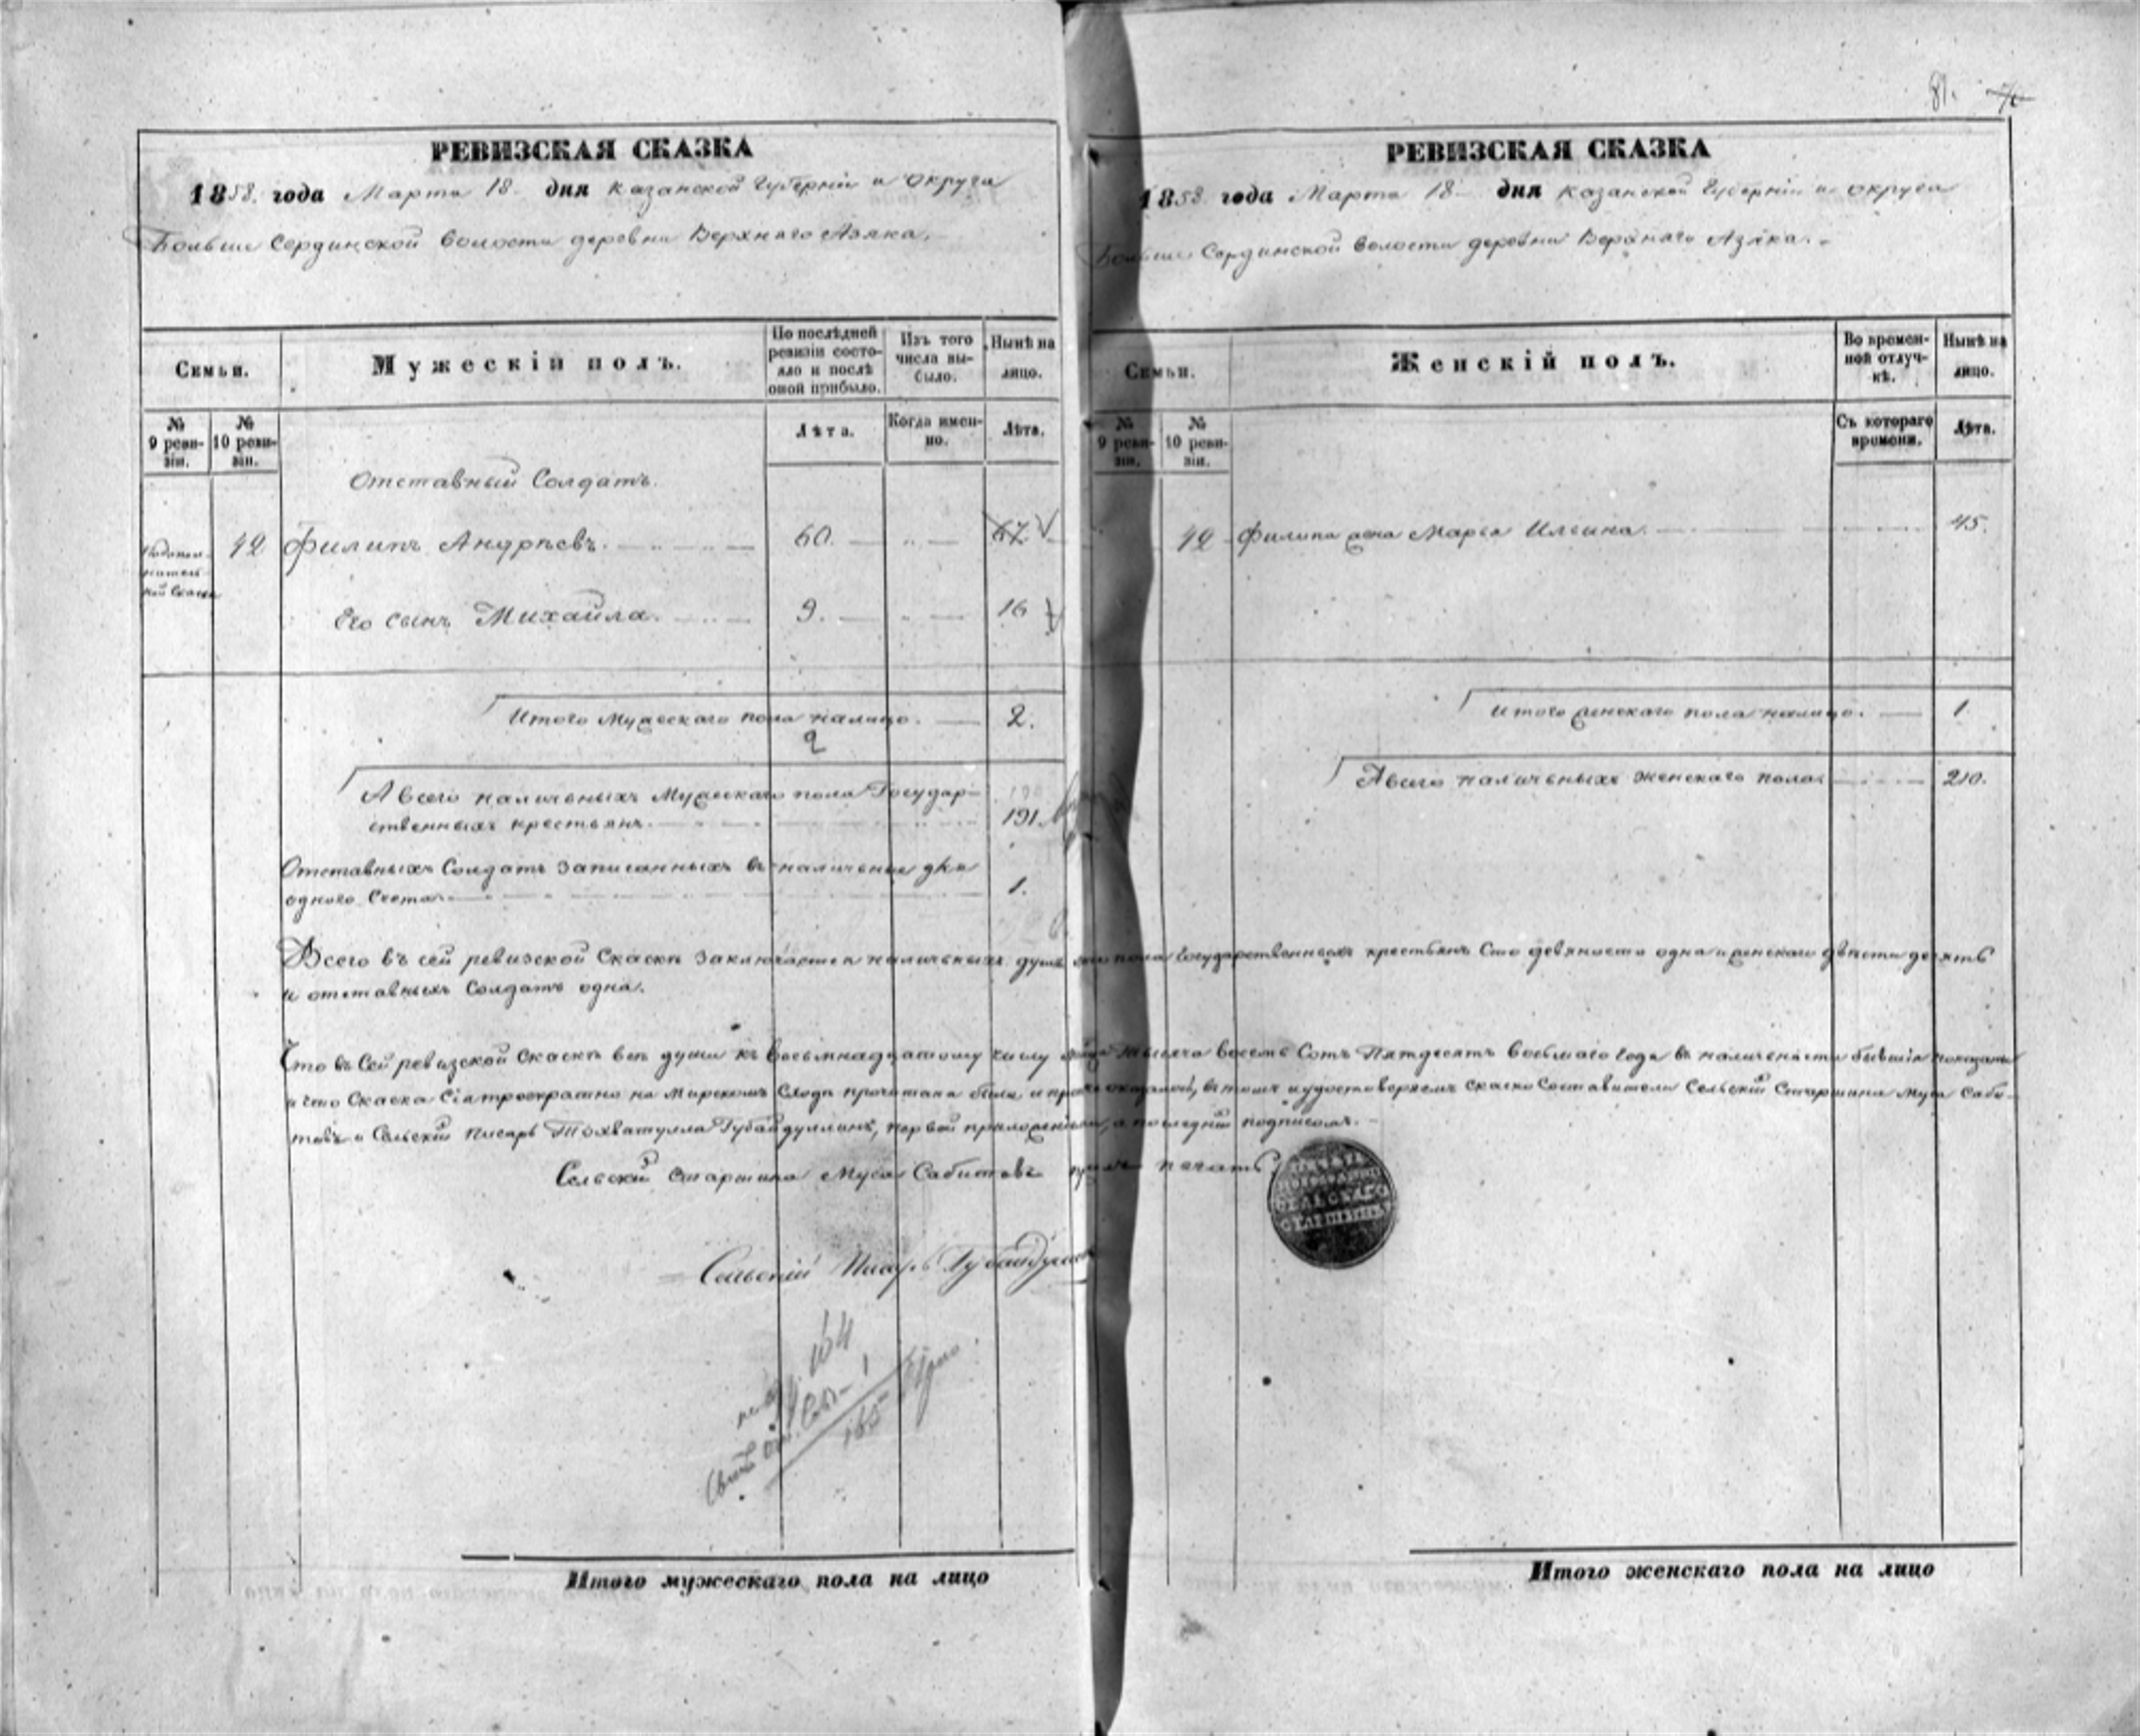 81.
РЕВИЗСКАЯ СКАЗКА
1858. года Марта 18. дня Казанской Губерніи и Округа
Больше Сердинской волости деревни Верхняго Азяка.
Семьи.
Мужескій полъ.
По послѣдней ревизіи состо-
яло и послѣ
оной прибыло.
Изъ того
числа вы-
было.
Нынѣ на
лицо.
№
9 реви-
зіи.
№
10 реви-
зіи.
Лѣта.
Когда имен-
но.
Лѣта.
Отставный Солдатъ.
42 Филипъ Андрѣевъ. 60. 67
Его сынъ Михайла. 9. 16
Итого Мужескаго пола налицо. 2.
2
А всего наличныхъ Мужескаго пола Государ-
ственныхъ крестьянъ. 191.
Отставныхъ Солдатъ записанныхъ въ наличные для
одного Счета. 1.
РЕВИЗСКАЯ СКАЗКА
1858 года Марта 18 дня Казанской Губерніи и округа
Больше Сердинской волости деревни Верхняго Азяка.
Семьи.
Женскій полъ.
Во времен-
ной отлуч-
кѣ.
Нынѣ на
лицо.
№
9 реви-
зіи.
№
10 реви-
зіи.
Съ котораго
времени.
Лѣта.
42 Филипа жена Марья Ильина. 45.
Итого женскаго пола налицо. 1.
А всего наличныхъ женскаго пола. 210.
Всего въ сей ревизской Сказкѣ заключается наличныхъ душъ пола Государственныхъ крестьянъ Сто девяносто одна и женскаго двѣсти десять
и отставныхъ Солдатъ одна.
Что въ Сей ревизской Сказкѣ всѣ души къ восемнадцатому числу тысяча восемь Сотъ Пятдесятъ восьмаго года въ наличности бывшія показаны
и что Сказка Сія троекратно на Мирскомъ Сходѣ прочитана была и въ томъ и удостовѣряемъ Сказко Составители Сельскій Старшина Муса Саби-
товъ и Сельскій писарь Тохватулла Губайдуллинъ, первой приложеніемъ, а последній подписомъ.
Сельскій Старшина Муса Сабитовъ печать
СЕЛЬСКАГО
СТАРШИНЫ
Сельскій Писарь Губайдуллинъ
164
1
165
Итого мужескаго пола на лицо
Итого женскаго пола на лицо